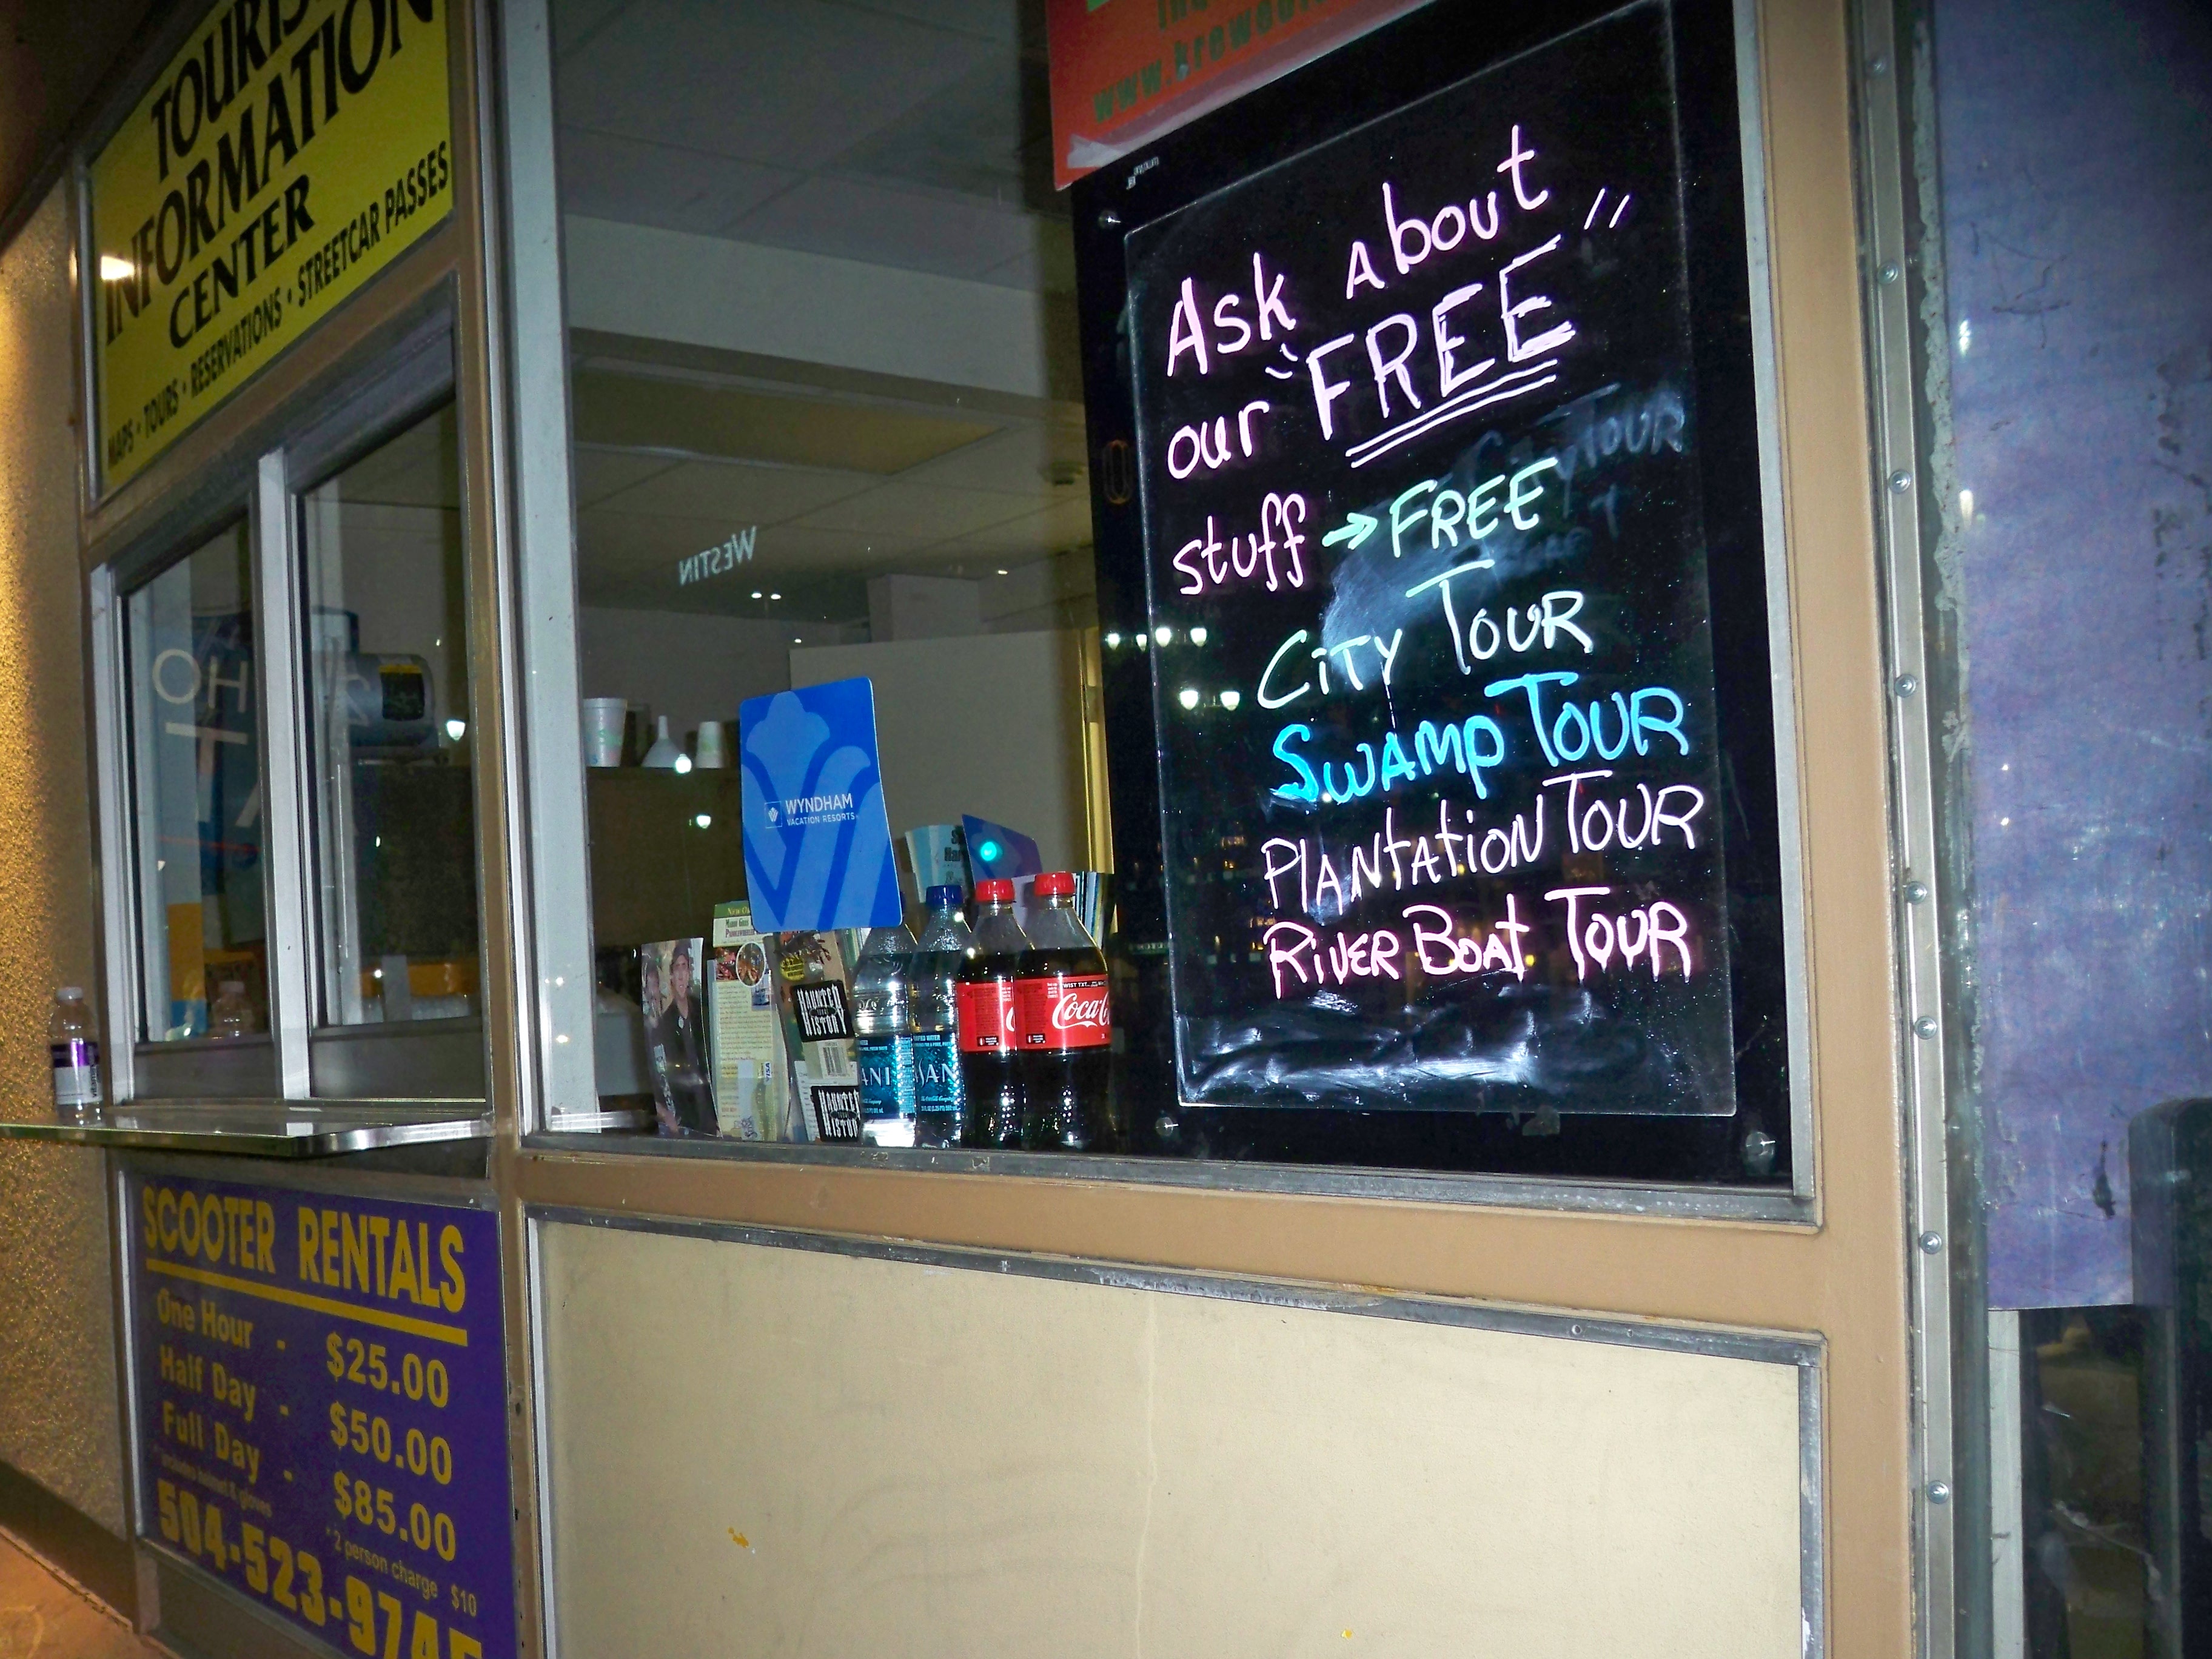 TOURIS
INFORMATION
CENTER
MAPS • TOURS • RESERVATIONS • STREETCAR PASSES
www.krewe
Ask About
our "FREE"
stuff → FREE
City Tour
Swamp Tour
Plantation Tour
River Boat Tour
WESTIN
WYNDHAM
VACATION RESORTS
HAUNTED
HISTORY
HAUNTED
HISTORY
ANI
SAN
Coca-C
SCOOTER RENTALS
One Hour - $25.00
Half Day - $50.00
Full Day - $85.00
*includes helmet & gloves
* 2 person charge $10
504-523-974